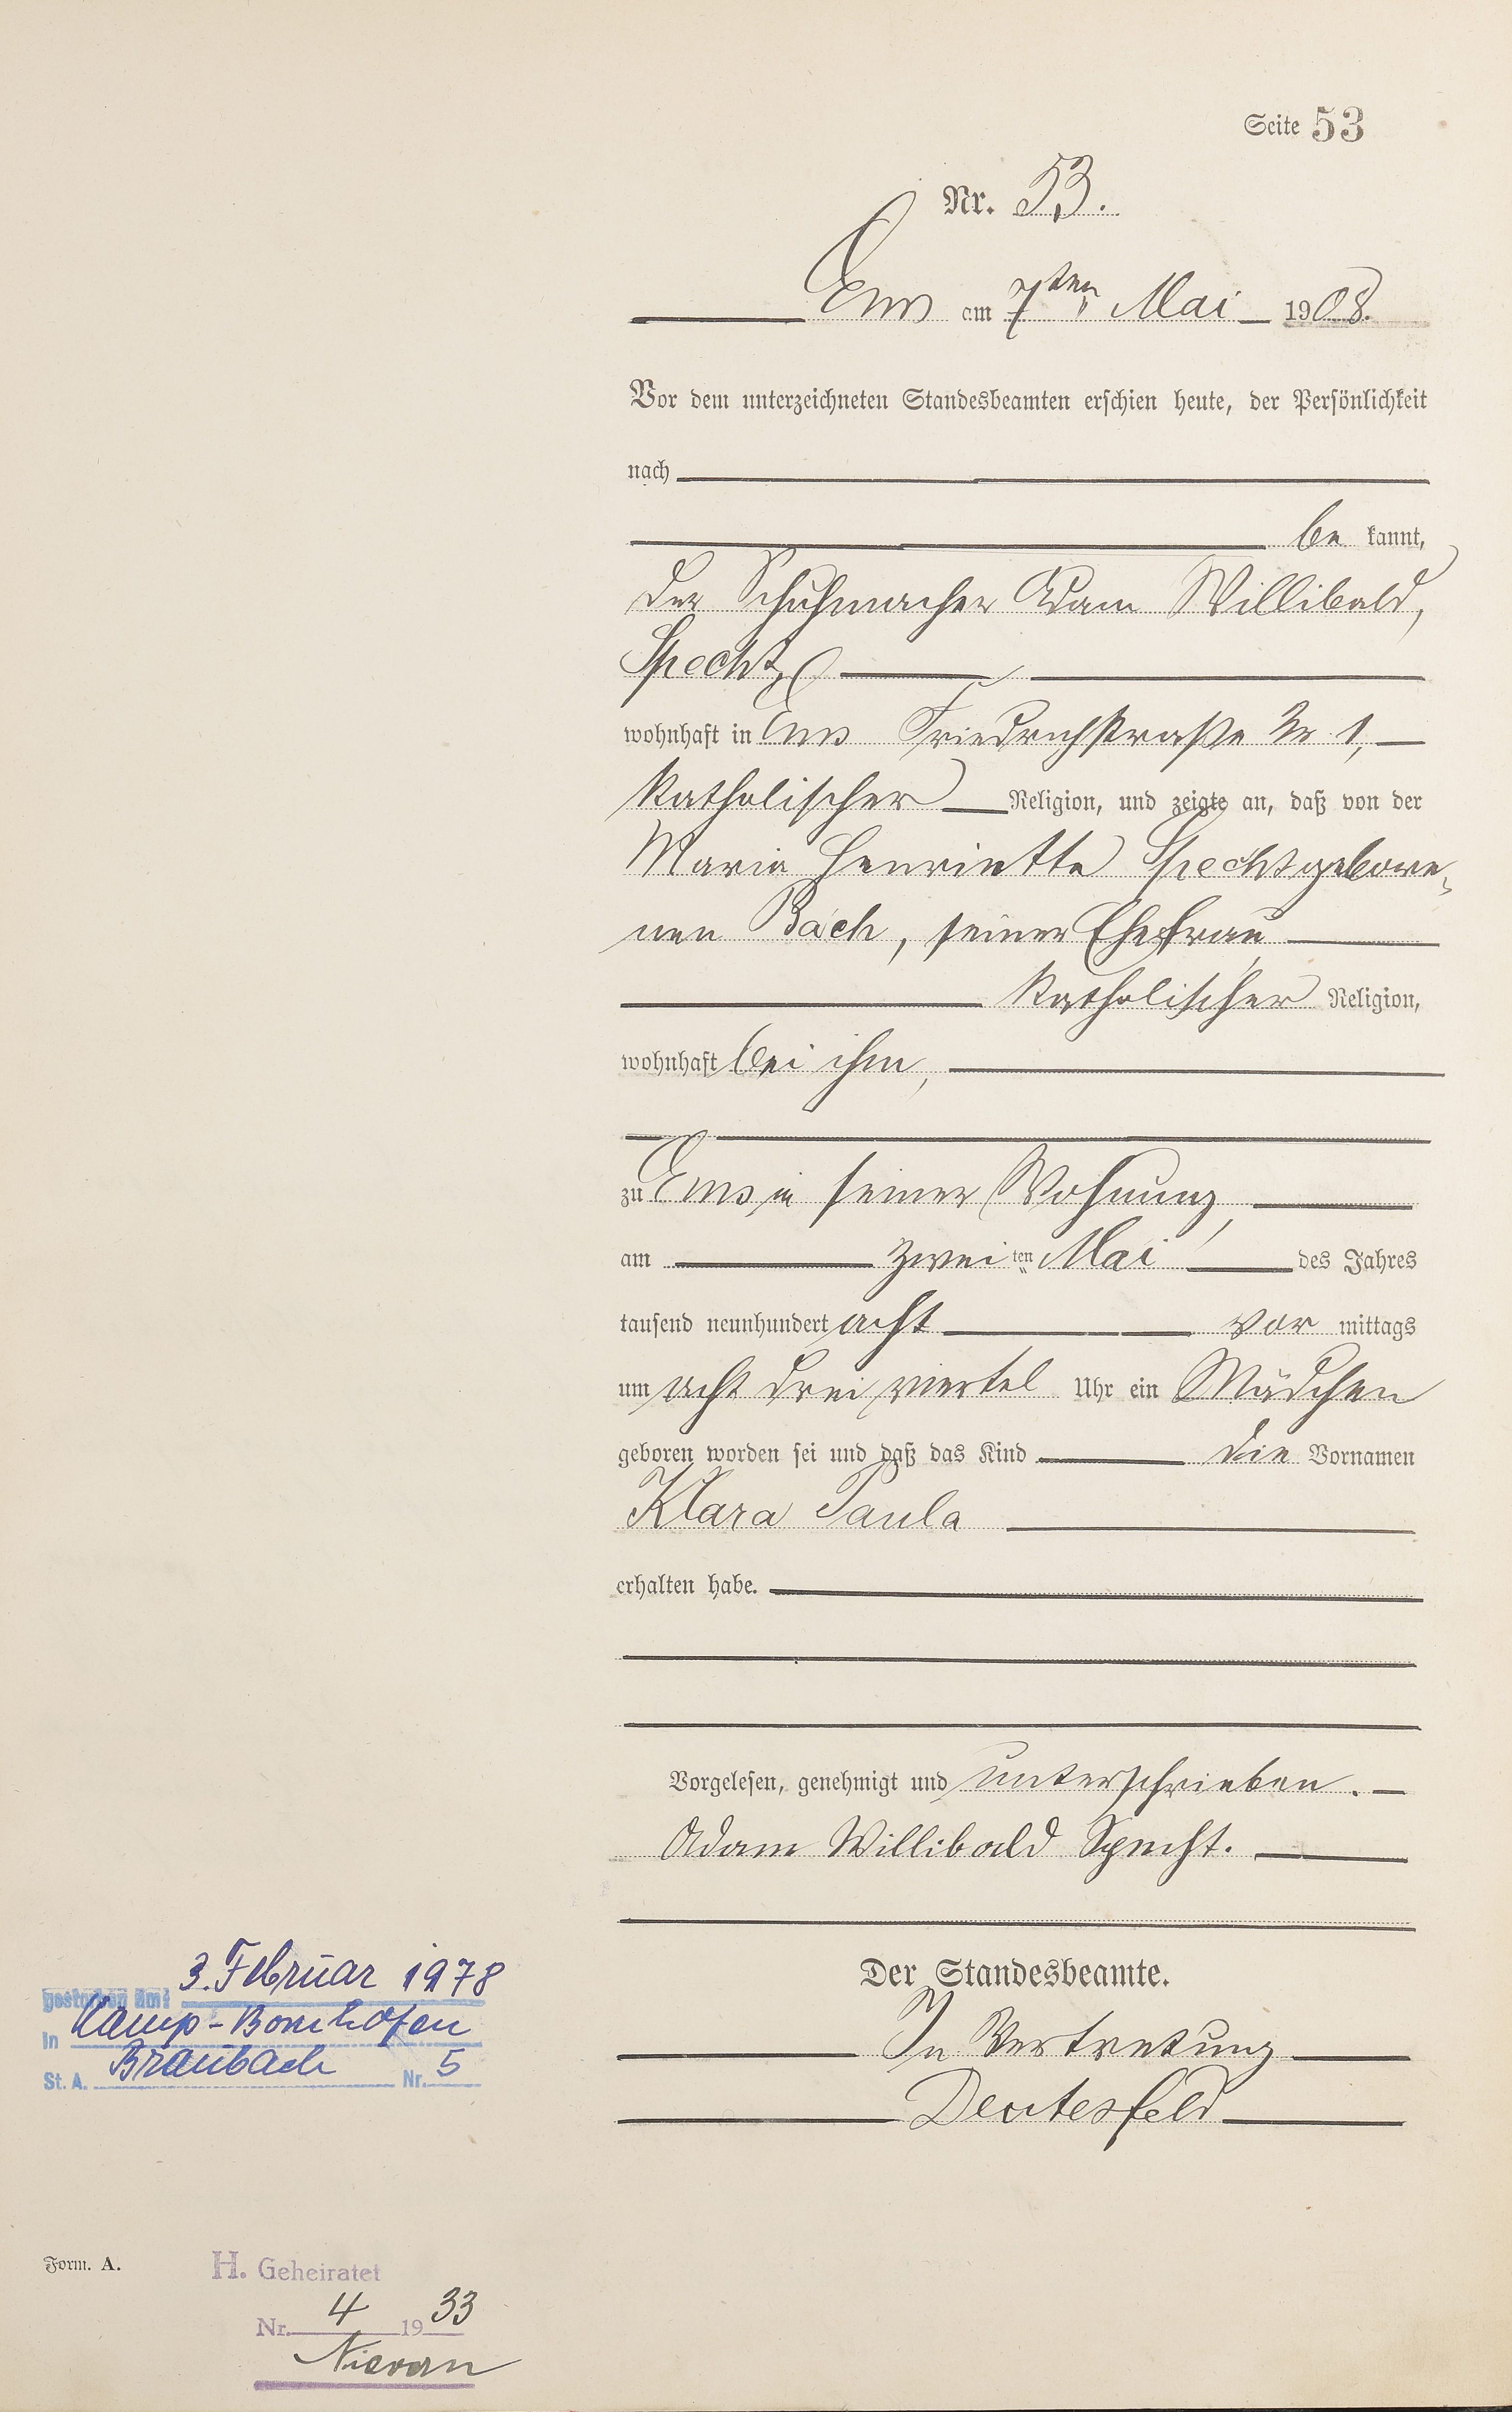 Seite 53
Nr. 53.
Ems am 7ten Mai 1908.
Vor dem unterzeichneten Standesbeamten erschien heute, der Persönlichkeit
nach
be kannt,
der Schuhmacher Adam Willibald,
Specht,
wohnhaft in Ems Friedrichstraße Nr 1,
katholischer Religion, und zeigte an, daß von der
Maria Henriette Specht gebore-
nen Bach, seiner Ehefrau
katholischer Religion,
wohnhaft bei ihm,
zu Ems in seiner Wohnung,
am zweiten Mai des Jahres
tausend neunhundert acht vor mittags
um acht drei viertel Uhr ein Mädchen
geboren worden sei und daß das Kind die Vornamen
Klara Paula
erhalten habe.
Vorgelesen, genehmigt und unterschrieben.
Adam Willibald Specht.
Der Standesbeamte.
In Vertretung
Deutesfeld
gestorben am: 3. Februar 1978
in Kamp-Bornhofen
St. A. Braubach Nr. 5
Form. A.
H. Geheiratet
Nr. 4 1933
Nievern